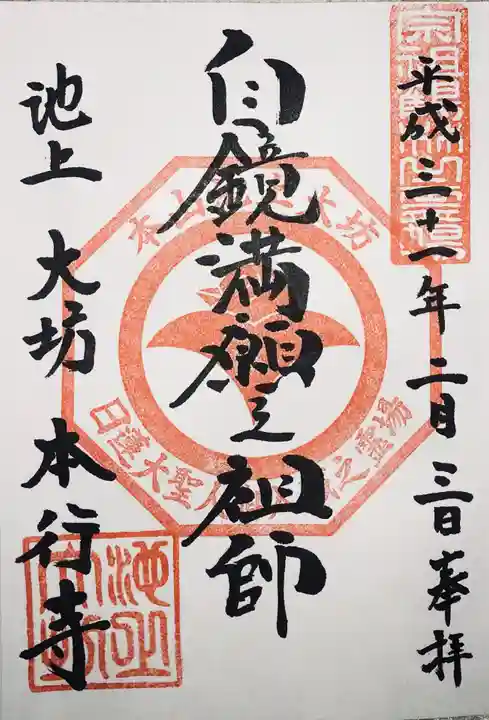 平成三十一年二月三日奉拝
自鏡満願之祖師
池上 大坊 本行寺
本山 大坊
日蓮大聖人 之霊場